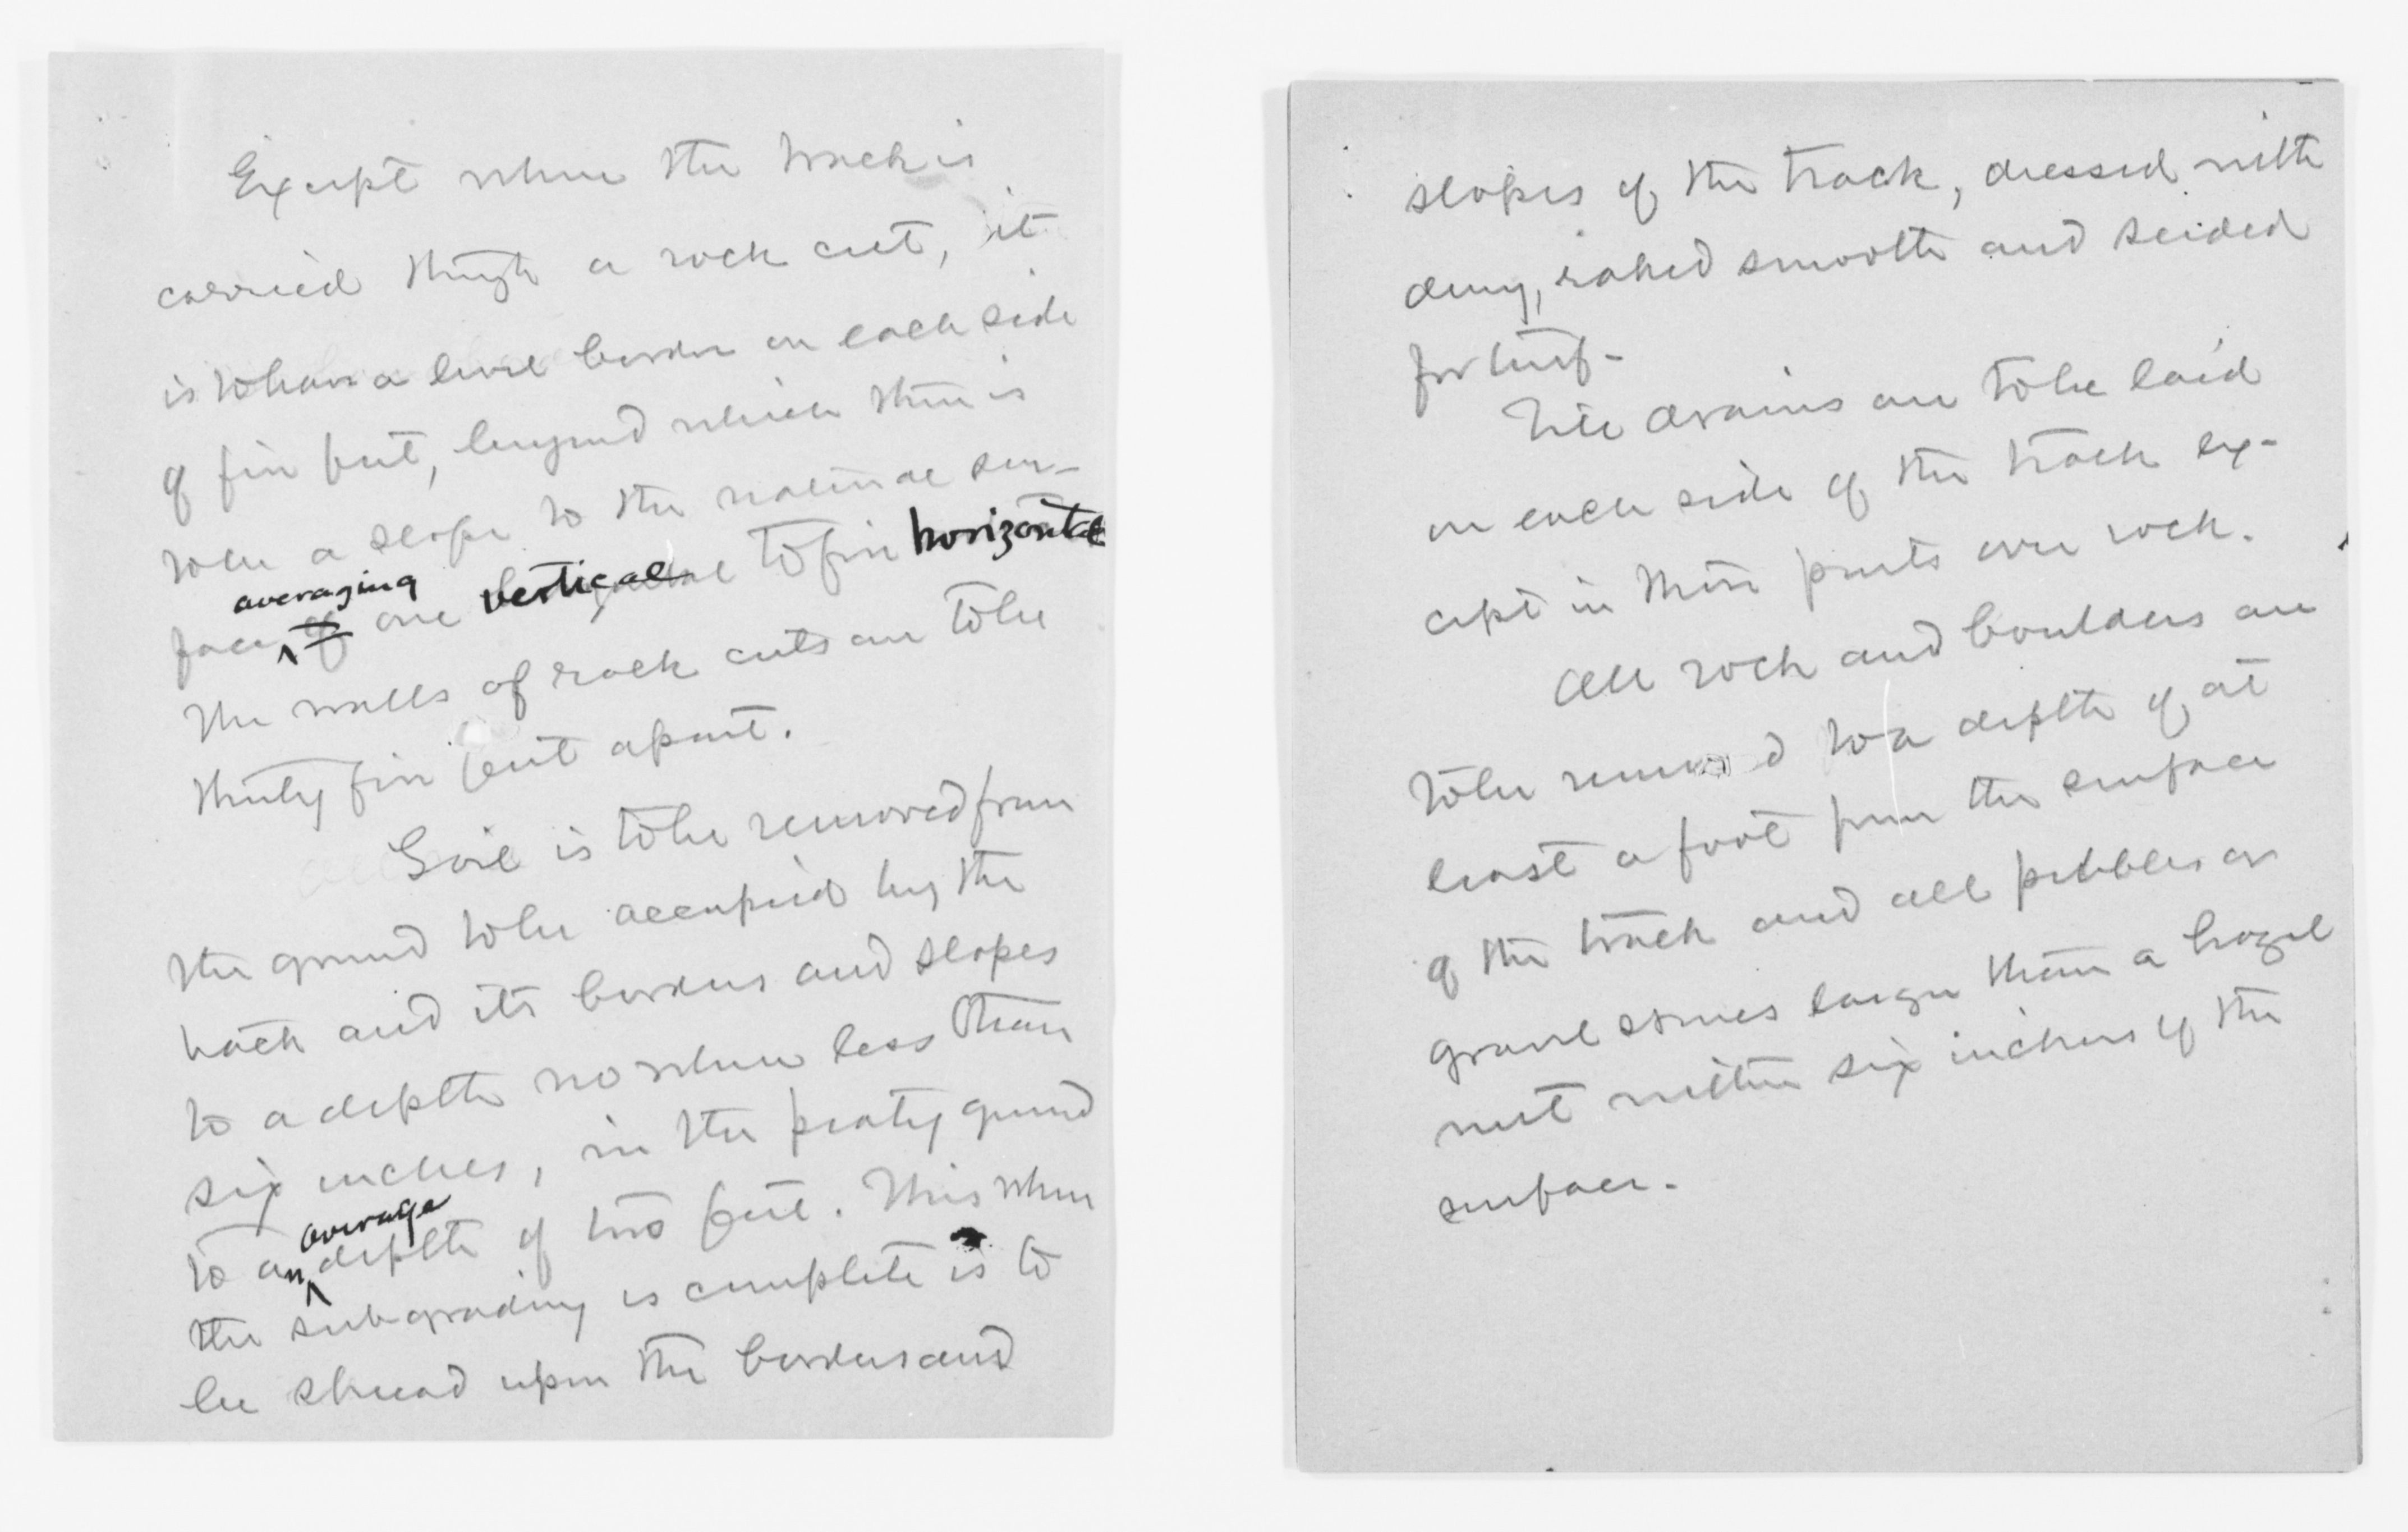 Except where the track is
carried through a rock cut, it
is to have a level border on each side
of five feet, beyond which there is
to be a slope to the natural sur-
averaging
face of one vertical to five horizontal
The walls of rock cuts are to be
thirty five feet apart.
Soil is to be removed from
the ground to be occupied by the
track and its borders and slopes
to a depth nowhere less than
six inches, in the peaty ground
average
to an depth of two feet. This when
the subgrading is complete is to
be spread upon the borders and
slopes of the track, dressed with
dung, raked smooth and seeded
for turf-
Tile drains are to be laid
on each side of the track ex-
cept in those parts over rock.
All rock and boulders are
to be removed to a depth of at
least a foot from the surface
of the track and all pebbles or
gravel stones larger than a hazel
nut within six inches of the
surface.